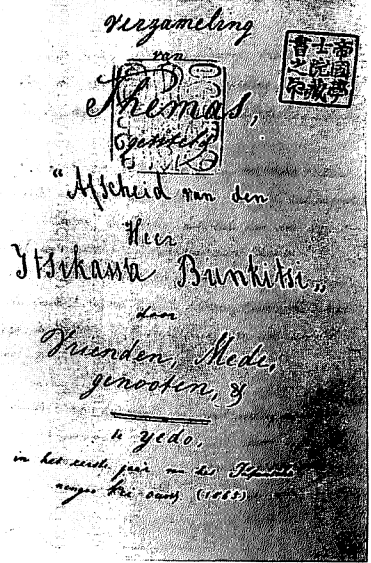 Verzameling
van
Themas,
getiteld
"Afscheid van den
Heer
Itsikawa Bunkitsi„
door
Vrienden, Mede,
genooten, &
te yedo,
in het eerste jaar van
nengo (1865)
帝國學
士院藏
書之印